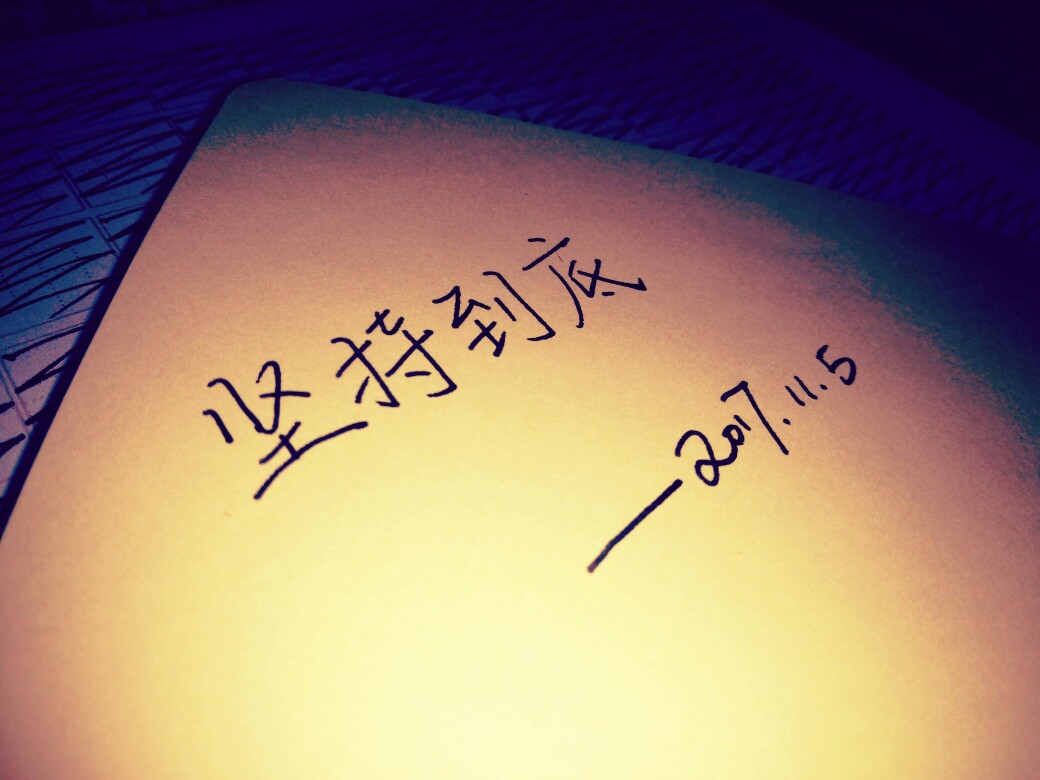 坚持到底
—2017.11.5